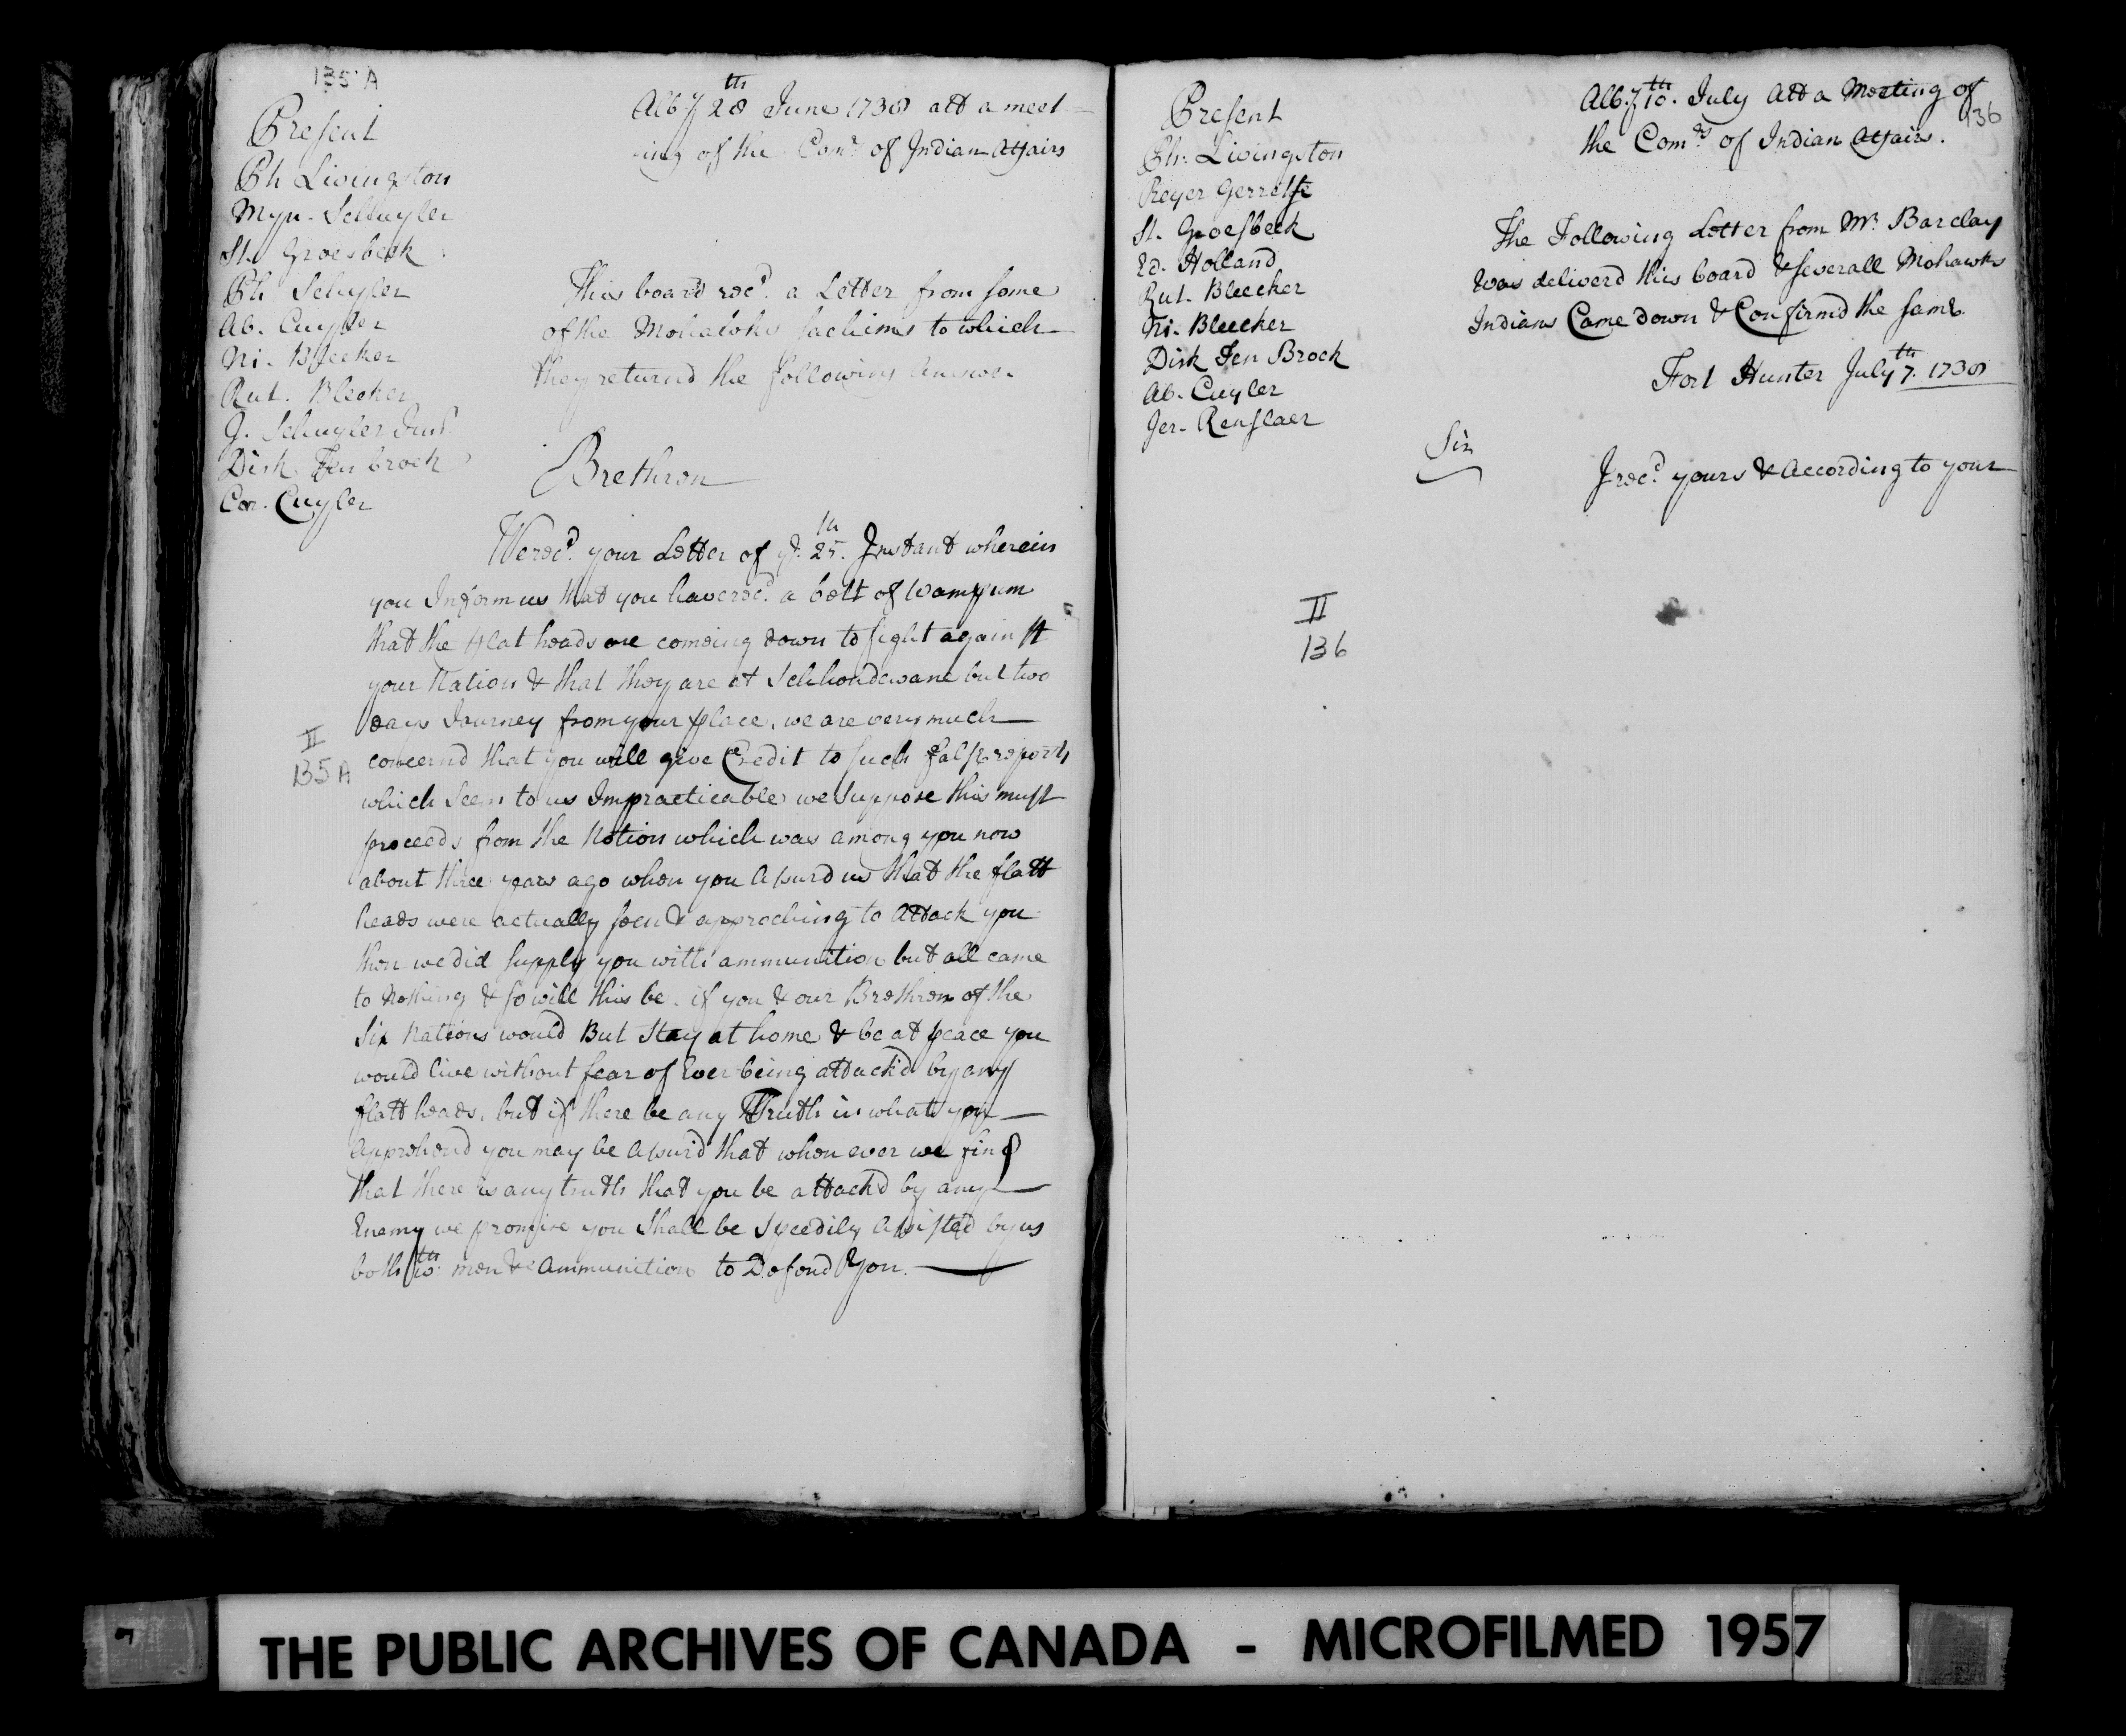 135 A
Alb. yͤ 28th June 1738 att a meet-
ing of the Comrs of Indian Affairs
Present
Ph Livingston
Myn. Schuyler
St. Groesbeck
Ph Schyler
Ab. Cuyler
Ni. Bleeker
Rut. Bleeker
J. Schuyler Junr
Dirk Ten broek
Cor. Cuyler
This board recd. a Letter from some
of the Mohawks sachims to which
they returnd the following Answer
Brethren
We recd. your Letter of ye. 25th. Instant wherein
you Inform us that you have recd. a belt of Wampum
that the Flat heads are comeing down to fight against
your Nation & that they are at Schhondewane but two
days Journey from your place, we are very much
concernd that you will give Credit to such false reports
which Seem to us Impracticable we suppose this must
proceeds from the Notion which was among you now
about three years ago when you Assurd us that the flatt
heads were actually seen & approching to Attack you
then we did supply you with ammunition but all came
to Nothing & so will this be. if you & our Brethren of the
Six Nations would But Stay at home & be at peace you
would live without fear of Ever being attack'd by any
flatt heads, but if there be any Truth in what you
Apprehend you may be Assur'd that when ever we find
that there is any truth that you be attack'd by any
Enemy we promise you Shall be Speedily Assisted by us
both wth. men & Ammunition to Defend You.
II
135 A
136
Alb. ye 10th. July Att a Meeting of
the Comrs of Indian Affairs.
Present
Ph. Livingston
Reyer Gerretse
St. Groesbeck
Ed. Holland
Rut. Bleecker
Ni. Bleecker
Dirk Ten Broek
Ab. Cuyler
Jer. Renslaer
The Following Letter from Mr. Barclay
was deliverd this board & severall Mohawks
Indians Came down & Confirmd the same
Fort Hunter July 7th. 1738
Sir
I recd. yours & According to your
II
136
THE PUBLIC ARCHIVES OF CANADA - MICROFILMED 1957